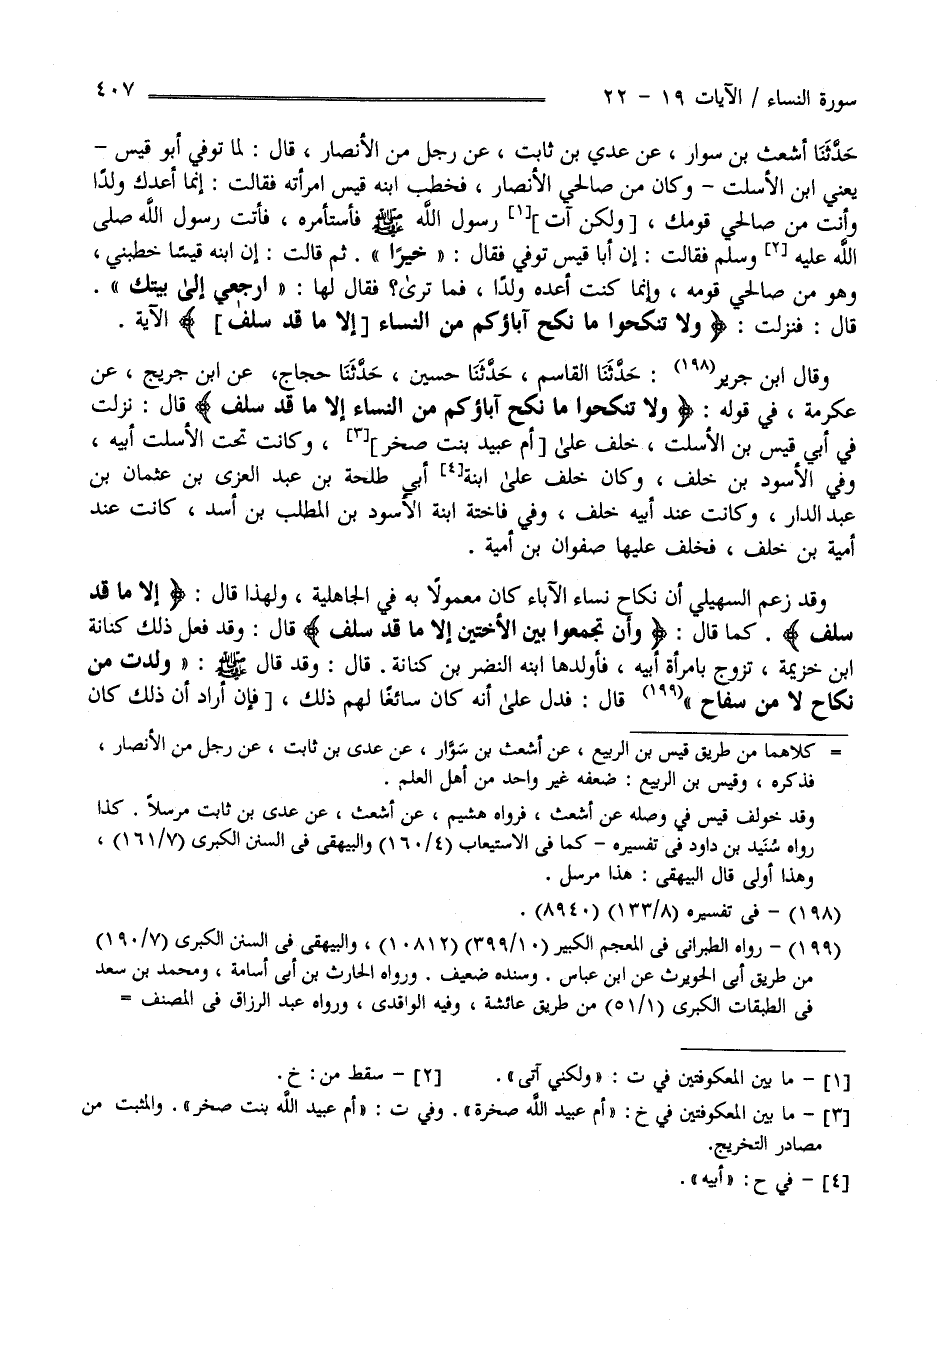 سورة النساء / الآيات ١٩ - ٢٢
٤٠٧
حَدَّثَنَا أشعث بن سوار ، عن عدي بن ثابت ، عن رجل من الأنصار ، قال : لما توفي أبو قيس -
يعني ابن الأسلت - وكان من صالحي الأنصار ، فخطب ابنه قيس امرأته فقالت : إنما أعدك ولدًا
وأنت من صالحي قومك ، [ولكن آت][١] رسول الله ﷺ فأستأمره ، فأتت رسول الله صلى
الله عليه [٢] وسلم فقالت : إن أبا قيس توفي فقال : « خيرًا » . ثم قالت : إن ابنه قيسًا خطبني ،
وهو من صالحي قومه ، وإنما كنت أعده ولدًا ، فما ترىٰ؟ فقال لها : « ارجعي إلىٰ بيتك » .
قال : فنزلت : ﴿ ولا تنكحوا ما نكح آباؤكم من النساء [إلا ما قد سلف] ﴾ الآية .
وقال ابن جرير(١٩٨) : حَدَّثَنَا القاسم ، حَدَّثَنَا حسين ، حَدَّثَنَا حجاج، عن ابن جريج ، عن
عكرمة ، في قوله : ﴿ ولا تنكحوا ما نكح آباؤكم من النساء إلا ما قد سلف ﴾ قال : نزلت
في أبي قيس بن الأسلت ، خلف علىٰ [أم عبيد بنت صخر][٣] ، وكانت تحت الأسلت أبيه ،
وفي الأسود بن خلف ، وكان خلف علىٰ ابنة[٤] أبي طلحة بن عبد العزى بن عثمان بن
عبد الدار ، وكانت عند أبيه خلف ، وفي فاختة ابنة الأسود بن المطلب بن أسد ، كانت عند
أمية بن خلف ، فخلف عليها صفوان بن أمية .
وقد زعم السهيلي أن نكاح نساء الآباء كان معمولًا به في الجاهلية ، ولهذا قال : ﴿ إلا ما قد
سلف ﴾ . كما قال : ﴿ وأن تجمعوا بين الأختين إلا ما قد سلف ﴾ قال : وقد فعل ذلك كنانة
ابن خزيمة ، تزوج بامرأة أبيه ، فأولدها ابنه النضر بن كنانة . قال : وقد قال ﷺ : « ولدت من
نكاح لا من سفاح »(١٩٩) قال : فدل علىٰ أنه كان سائغًا لهم ذلك ، [ فإن أراد أن ذلك كان
= كلاهما من طريق قيس بن الربيع ، عن أشعث بن سَوَّار ، عن عدى بن ثابت ، عن رجل من الأنصار ،
فذكره ، وقيس بن الربيع : ضعفه غير واحد من أهل العلم .
وقد خولف قيس في وصله عن أشعث ، فرواه هشيم ، عن أشعث ، عن عدى بن ثابت مرسلاً . كذا
رواه سُنَيد بن داود فى تفسيره - كما فى الاستيعاب (٤/١٦٠) والبيهقى فى السنن الكبرى (٧/١٦١) ،
وهذا أولى قال البيهقى : هذا مرسل .
(١٩٨) - فى تفسيره (٨/١٣٣) (٨٩٤٠) .
(١٩٩) - رواه الطبرانى فى المعجم الكبير (١٠/٣٩٩) (١٠٨١٢) ، والبيهقى فى السنن الكبرى (٧/١٩٠)
من طريق أبى الحويرث عن ابن عباس . وسنده ضعيف . ورواه الحارث بن أبى أسامة ، ومحمد بن سعد
فى الطبقات الكبرى (١/٥١) من طريق عائشة ، وفيه الواقدى ، ورواه عبد الرزاق فى المصنف =
[١] - ما بين المعكوفتين في ت : «ولكني آتى». [٢] - سقط من: خ.
[٣] - ما بين المعكوفتين في خ: «أم عبيد الله صخرة». وفي ت : «أم عبيد الله بنت صخر». والمثبت من
مصادر التخريج.
[٤] - في ح: «أبيه».